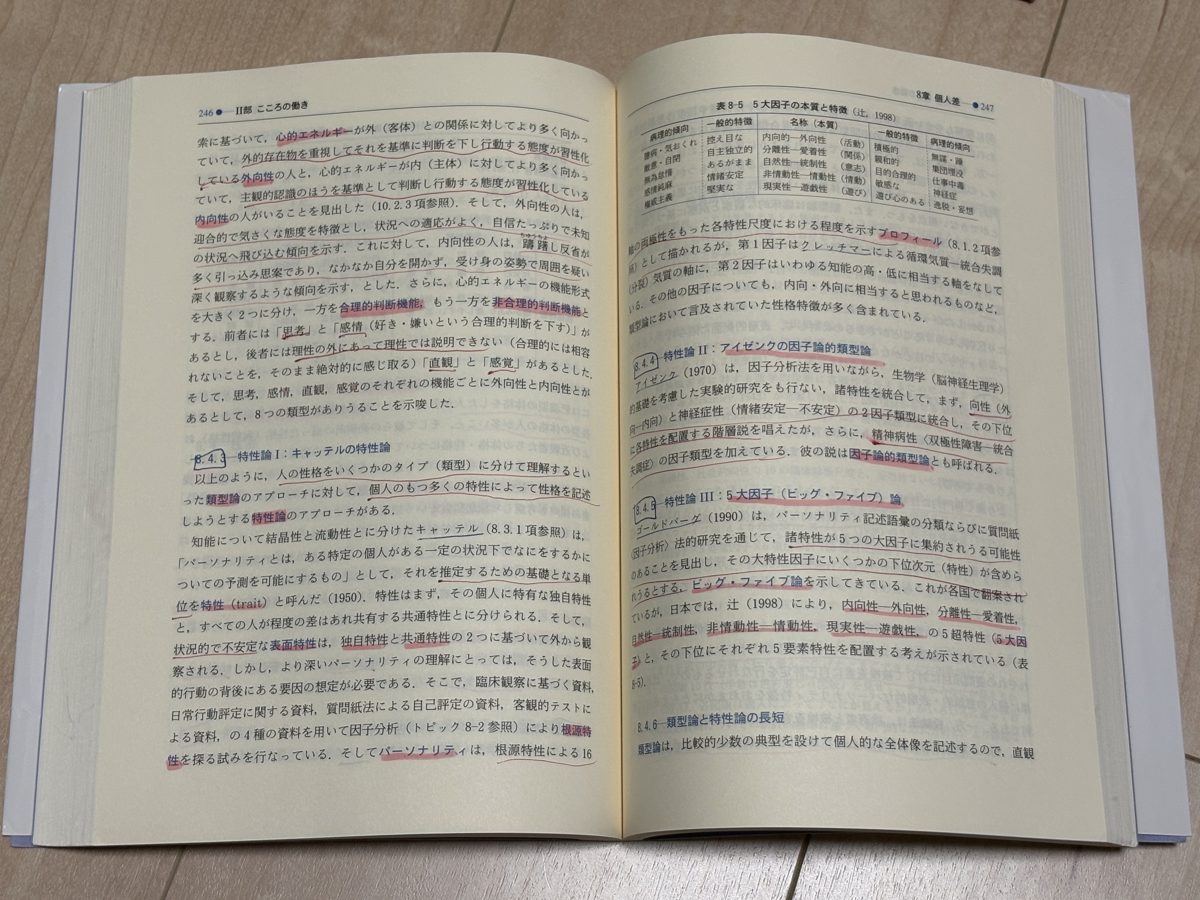 246●—II部 こころの働き
索に基づいて，心的エネルギーが外（客体）との関係に対してより多く向かっ
ていて，外的存在物を重視してそれを基準に判断を下し行動する態度が習性化
している外向性の人と，心的エネルギーが内（主体）に対してより多く向かっ
ていて，主観的認識のほうを基準として判断し行動する態度が習性化している
内向性の人がいることを見出した（10.2.3項参照）．そして，外向性の人は，
迎合的で気さくな態度を特徴とし，状況への適応がよく，自信たっぷりで未知
の状況へ飛び込む傾向を示す．これに対して，内向性の人は，躊躇し反省が
多く引っ込み思案であり，なかなか自分を開かず，受け身の姿勢で周囲を疑い
深く観察するような傾向を示す，とした．さらに，心的エネルギーの機能形式
を大きく2つに分け，一方を合理的判断機能，もう一方を非合理的判断機能と
する．前者には「思考」と「感情（好き・嫌いという合理的判断を下す）」が
あるとし，後者には理性の外にあって理性では説明できない（合理的には相容
れないことを，そのまま絶対的に感じ取る）「直観」と「感覚」があるとした．
そして，思考，感情，直観，感覚のそれぞれの機能ごとに外向性と内向性とが
あるとして，8つの類型がありうることを示唆した．
8.4.3—特性論I：キャッテルの特性論
以上のように，人の性格をいくつかのタイプ（類型）に分けて理解するとい
った類型論のアプローチに対して，個人のもつ多くの特性によって性格を記述
しようとする特性論のアプローチがある．
知能について結晶性と流動性とに分けたキャッテル（8.3.1項参照）は，
「パーソナリティとは，ある特定の個人がある一定の状況下でなにをするかに
ついての予測を可能にするもの」として，それを推定するための基礎となる単
位を特性（trait）と呼んだ（1950）．特性はまず，その個人に特有な独自特性
と，すべての人が程度の差はあれ共有する共通特性とに分けられる．そして，
状況的で不安定な表面特性は，独自特性と共通特性の2つに基づいて外から観
察される．しかし，より深いパーソナリティの理解にとっては，そうした表面
的行動の背後にある要因の想定が必要である．そこで，臨床観察に基づく資料，
日常行動評定に関する資料，質問紙法による自己評定の資料，客観的テストに
よる資料，の4種の資料を用いて因子分析（トピック8-2参照）により根源特
性を探る試みを行なっている．そしてパーソナリティは，根源特性による16
8章 個人差—●247
表8-5 5大因子の本質と特徴（辻，1998）
病理的傾向 一般的特徴 名称（本質） 一般的特徴 病理的傾向
臆病・気おくれ 控え目な 内向的—外向性（活動） 積極的 無謀・躁
敵意・自閉 自主独立的 分離性—愛着性（関係） 親和的 集団埋没
無為怠惰 あるがまま 自然性—統制性（意志） 目的合理的 仕事中毒
感情鈍麻 情緒安定 非情動性—情動性（情動） 敏感な 神経症
権威主義 堅実な 現実性—遊戯性（遊び） 遊び心のある 逸脱・妄想
軸の両極性をもった各特性尺度における程度を示すプロフィール（8.1.2項参
照）として描かれるが，第1因子はクレッチマーによる循環気質—統合失調
（分裂）気質の軸に，第2因子はいわゆる知能の高・低に相当する軸をなして
いる．その他の因子についても，内向・外向に相当すると思われるものなど，
類型論において言及されていた性格特徴が多く含まれている．
8.4.4—特性論II：アイゼンクの因子論的類型論
アイゼンク（1970）は，因子分析法を用いながら，生物学（脳神経生理学）
的基礎を考慮した実験的研究をも行ない，諸特性を統合して，まず，向性（外
向—内向）と神経症性（情緒安定—不安定）の2因子類型に統合し，その下位
に各特性を配置する階層説を唱えたが，さらに，精神病性（双極性障害—統合
失調症）の因子類型を加えている．彼の説は因子論的類型論とも呼ばれる．
8.4.5—特性論III：5大因子（ビッグ・ファイブ）論
ゴールドバーグ（1990）は，パーソナリティ記述語彙の分類ならびに質問紙
（因子分析）法的研究を通じて，諸特性が5つの大因子に集約されうる可能性
のあることを見出し，その大特性因子にいくつかの下位次元（特性）が含めら
れうるとする，ビッグ・ファイブ論を示してきている．これが各国で翻案され
ているが，日本では，辻（1998）により，内向性—外向性，分離性—愛着性，
自然性—統制性，非情動性—情動性，現実性—遊戯性，の5超特性（5大因
子）と，その下位にそれぞれ5要素特性を配置する考えが示されている（表
8-5）．
8.4.6—類型論と特性論の長短
類型論は，比較的少数の典型を設けて個人的な全体像を記述するので，直観